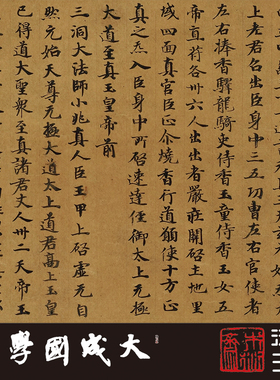 上老君召出臣身中三五功曹左右官使者
左右捧香驛龍騎吏侍香玉童侍香玉女五
帝直符各卅六人出出者嚴莊關啓土地里
域四面真官臣正尒燒香行道願使十方正
真之炁入臣身中所啓速達徑御太上无極
大道至真玉皇帝前
三洞大法師小兆真人臣王甲上啓虛无自
然元始天尊无極大道太上道君高上玉皇
已得道大聖衆至真諸君丈人卅二天帝玉
大成國學